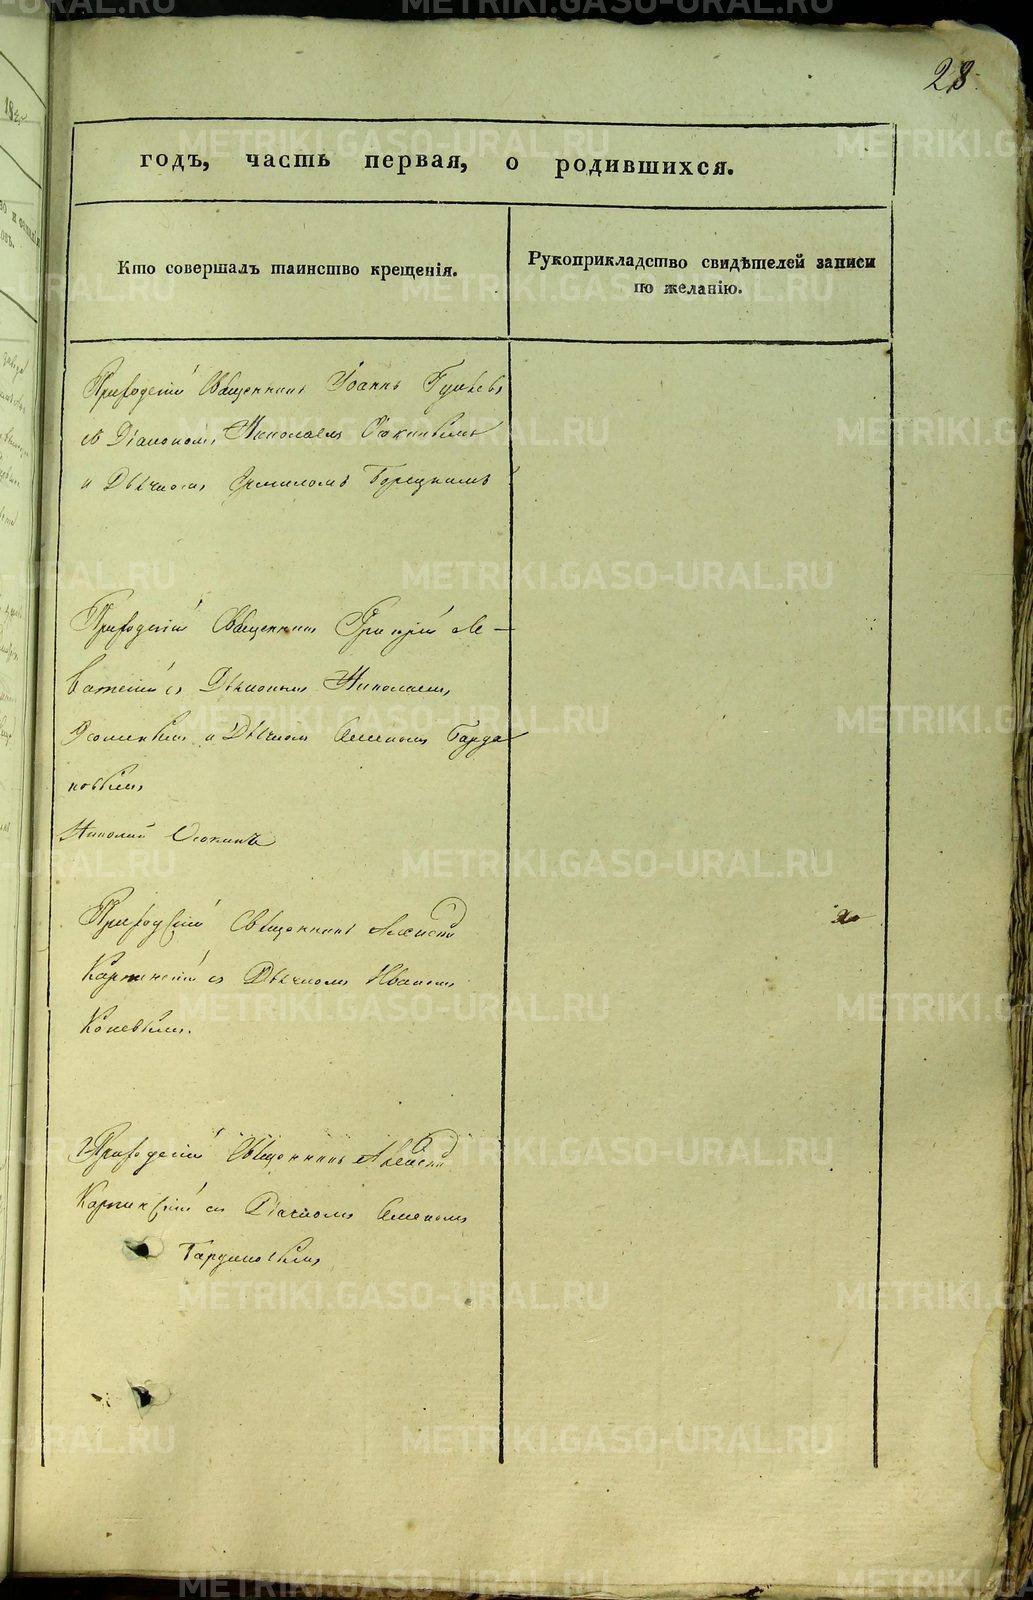 28
годъ, часть первая, о родившихся.
Кто совершалъ таинство крещенія.
Рукоприкладство свидѣтелей записи
по желанію.
Приходскій Священникъ Іоаннъ
съ Діакономъ Николаемъ Осокинымъ
и Дьячкомъ
Приходскій Священникъ Григорій
съ Діакономъ Николаемъ
Осокинымъ и Дьячкомъ Семеномъ Гарда
новымъ
Николай Осокинъ
Приходскій Священникъ Алексій
Карпинскій съ Дьячкомъ Иваномъ
Коневымъ.
Приходскій Священникъ Алексій
Карпинскій съ Дьячкомъ Семеномъ
Гардановымъ
METRIKI.GASO-URAL.RU